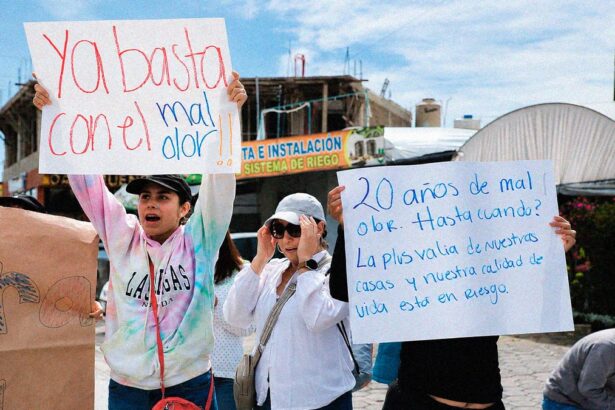 Ya basta
con el mal
olor!!
TA E INSTALACIÓN
SISTEMA DE RIEGO
LAS VEGAS
20 años de mal
olor. Hasta cuando?
La plus valia de nuestras
casas y nuestra calidad de
vida está en riesgo.